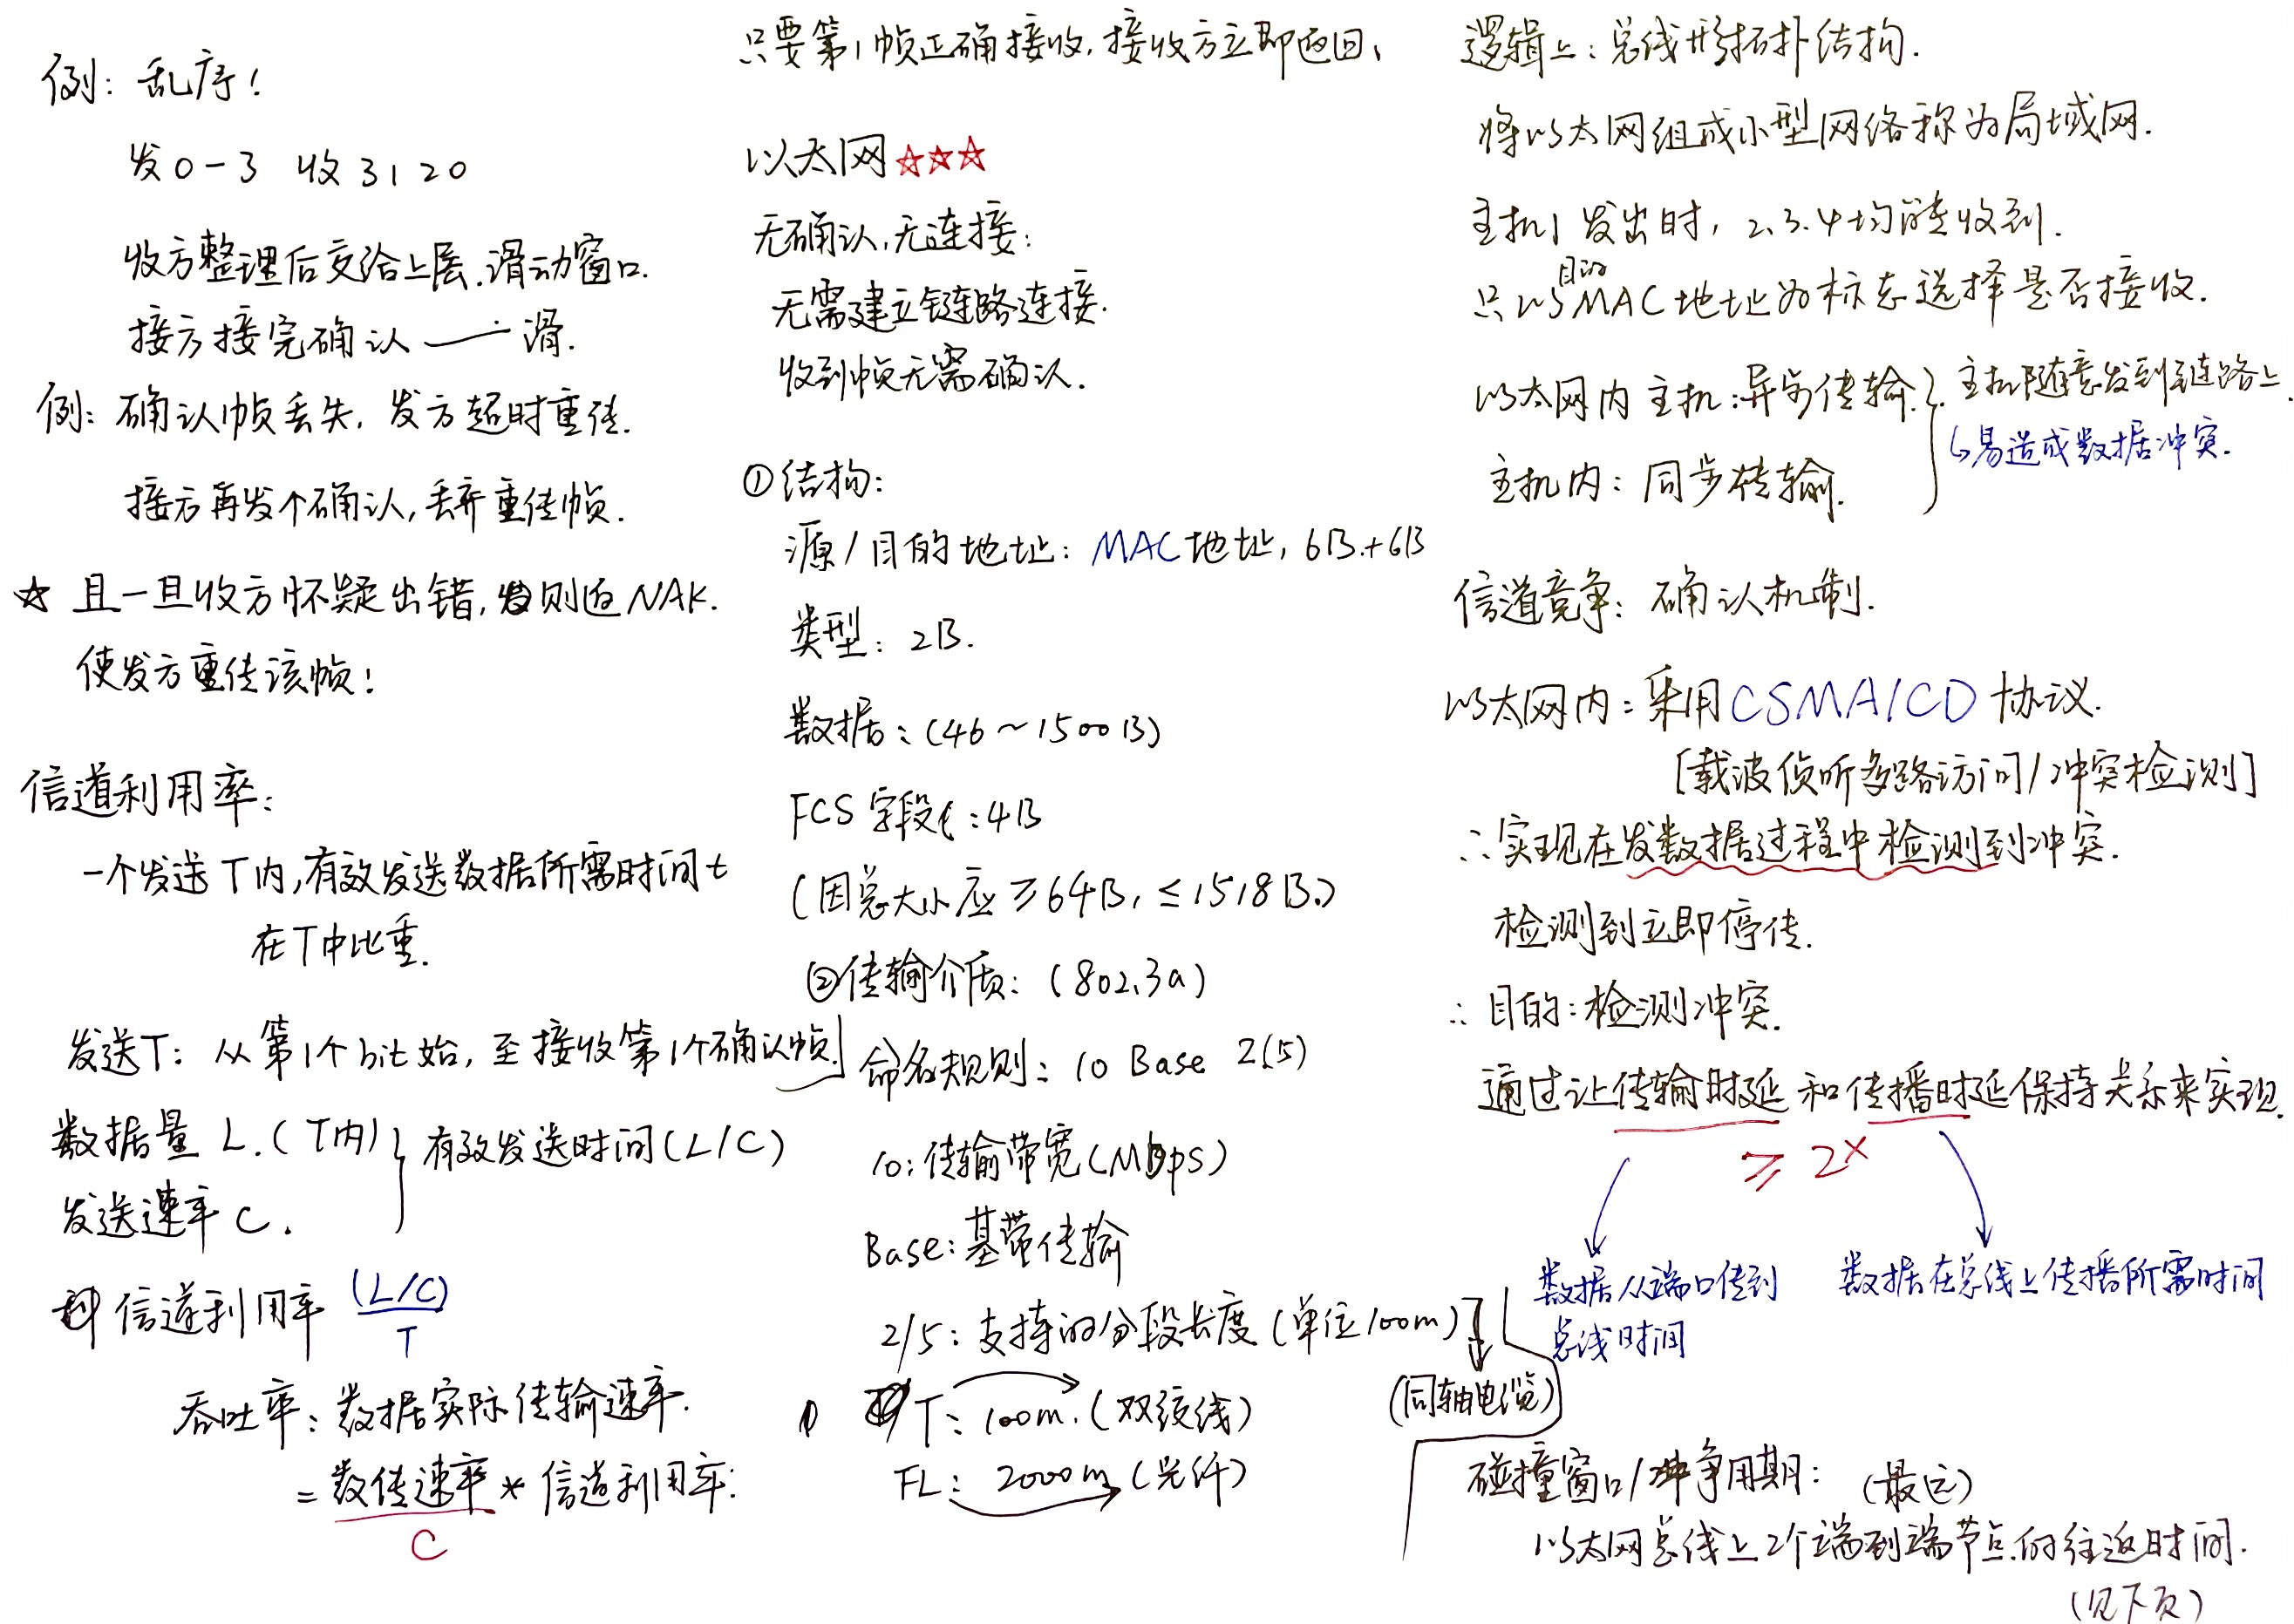 例：乱序！
发0-3 收3120
收方整理后交给上层.滑动窗口.
接方接完确认——滑.
例：确认帧丢失，发方超时重传.
接方再发个确认，丢弃重传帧.
☆ 且一旦收方怀疑出错，则返NAK.
使发方重传该帧！
信道利用率：
一个发送T内，有效发送数据所需时间t
在T中比重.
发送T：从第1个bit始，至接收第1个确认帧.
数据量 L.（T内）
发送速率 C.
有效发送时间(L/C)
信道利用率 (L/C)
T
吞吐率：数据实际传输速率.
=数传速率*信道利用率.
C
只要第1帧正确接收，接收方立即返回、
以太网☆☆☆
无确认，无连接：
无需建立链路连接.
收到帧无需确认.
①结构：
源/目的地址：MAC地址，6B.+6B
类型：2B.
数据：(46~1500B)
FCS字段：4B
(因总大小应≥64B，≤1518B.)
②传输介质：(802.3a)
命名规则：10 Base 2(5)
10：传输带宽(Mbps)
Base：基带传输
2/5：支持的分段长度(单位100m)
(同轴电缆)
T：100m.(双绞线)
FL：2000m(光纤)
逻辑上：总线形拓扑结构.
将以太网组成小型网络称为局域网.
主机1发出时，2、3、4均能收到.
目的
只以MAC地址为标志选择是否接收.
以太网内主机：异步传输.
主机随意发到链路上.
↳易造成数据冲突.
主机内：同步传输.
信道竞争：确认机制.
以太网内：采用CSMA/CD 协议.
[载波侦听多路访问/冲突检测]
∴实现在发数据过程中检测到冲突.
检测到立即停传.
∴目的：检测冲突.
通过让传输时延和传播时延保持关系来实现.
≥ 2×
数据从端口传到
总线时间
数据在总线上传播所需时间
碰撞窗口/争用期：(最远)
以太网总线上2个端到端节点的往返时间.
(见下页)